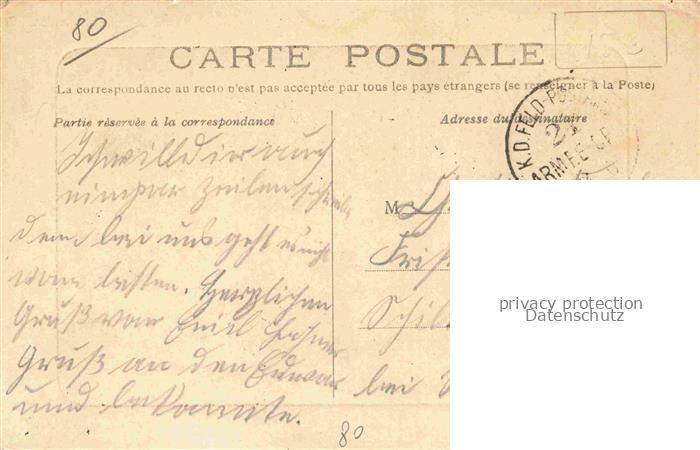 80
CARTE POSTALE
La correspondance au recto n'est pas acceptée par tous les pays étrangers (se renseigner à la Poste)
Partie réservée à la correspondance
Adresse du destinataire
K.D. FELD-POST
2
ARMEE
Ich will dir auch
ein par Zeilen schreiben
dem bei uns geht es nicht
vom besten. Herzlichen
Gruß von Emil
Gruß an den
und bekannte.
M
bei
privacy protection
Datenschutz
80